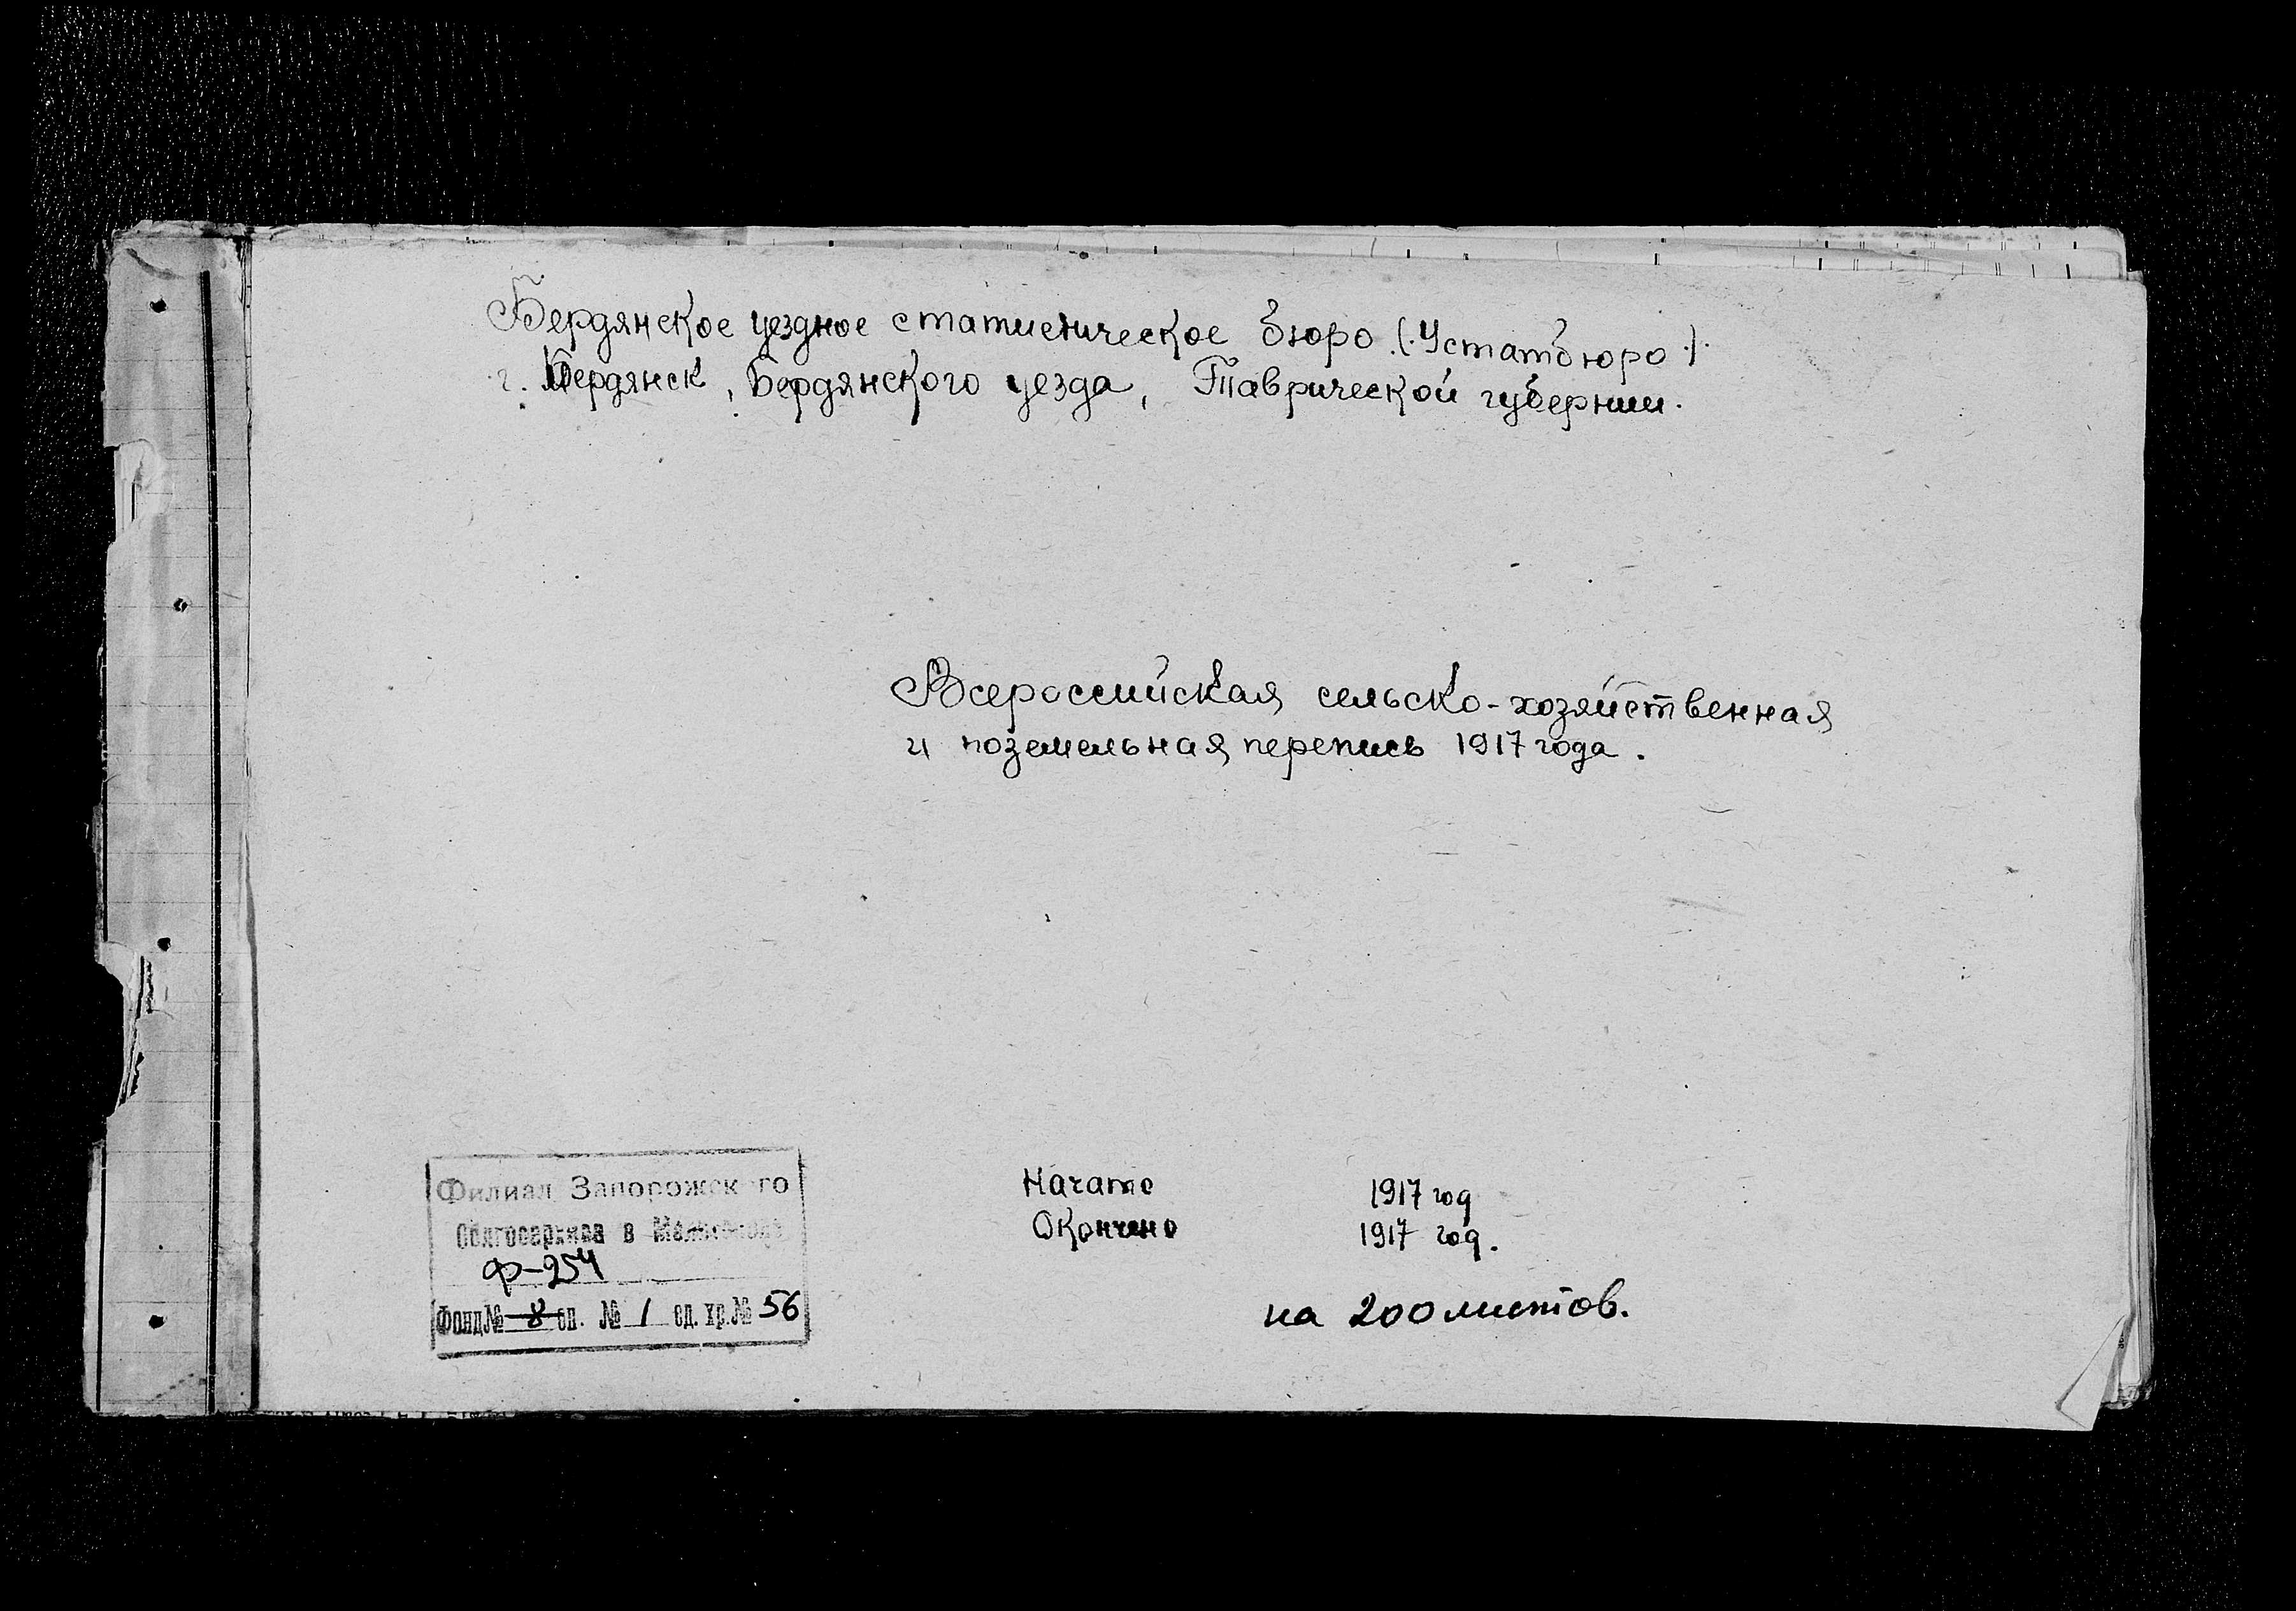 Бердянское уездное статистическое бюро (Устатбюро).
г. Бердянск, Бердянского уезда, Таврической губернии.
Всероссийская сельско-хозяйственная
и поземельная перепись 1917 года.
Филиал Запорожского
Облгосархива в
Ф-254
Фонд № 8 оп. № 1 ед. хр. № 56
Начато 1917 год
Окончено 1917 год.
на 200 листов.